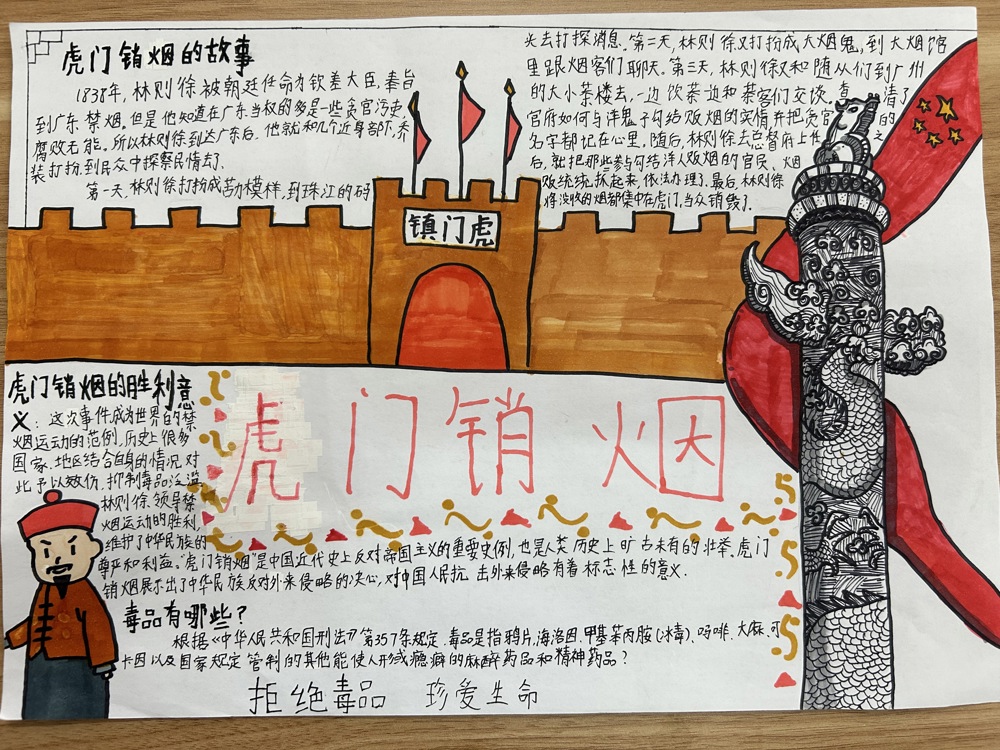 虎门销烟的故事
1838年,林则徐被朝廷任命为钦差大臣,奉旨
到广东禁烟。但是他知道在广东当权的多是一些贪官污吏,
腐败无能。所以林则徐到达广东后,他就和几个近身部下,乔
装打扮,到民众中探察民情去了。
第一天林则徐打扮成苦力模样,到珠江的码
头去打探消息。第二天,林则徐又打扮成大烟鬼,到大烟馆
里跟烟客们聊天。第三天,林则徐又和随从们到广州
的大小茶楼去,一边饮茶一边和茶客们交谈。清了
官府如何与洋鬼子勾结贩烟的实情并把贪官的
名字都记在心里。随后,林则徐去总督府上任之
后,就把那些参与勾结洋人贩烟的官员、烟
贩统统抓起来,依法办理了。最后,林则徐
将没收的烟都集中在虎门,当众销毁了。
镇门虎
虎门销烟的胜利意
义:这次事件成为世界的禁
烟运动的范例,历史上很多
国家、地区结合自身的情况对
此予以效仿,抑制毒品泛滥
林则徐领导禁
烟运动的胜利,
维护了中华民族的
尊严和利益。"虎门销烟"是中国近代史上反对帝国主义的重要史例,也是人类历史上旷古未有的壮举。虎门
销烟展示出了中华民族反对外来侵略的决心,对中国人民抗击外来侵略有着标志性的意义.
虎门销烟
毒品有哪些?
根据《中华人民共和国刑法》第357年规定,毒品是指鸦片,海洛因,甲基苯丙胺(冰毒)、吗啡、大麻、可
卡因以及国家规定管制的其他能使人形成瘾癖的麻醉药品和精神药品?
拒绝毒品 珍爱生命